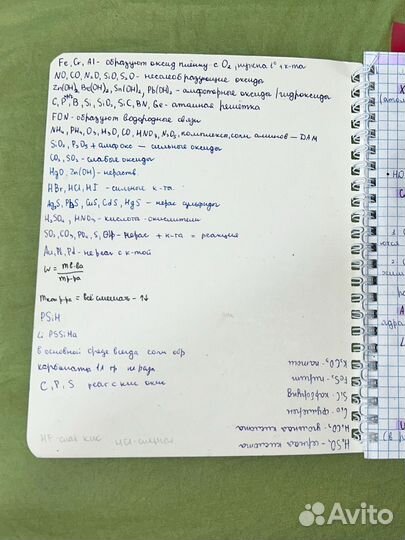 Fe, Cr, Al - образуют оксид плёнку с O₂, нужна t° + к-та
NO, CO, N₂O, SiO, S₂O - несолеобразующие оксиды
Zn(OH)₂ Be(OH)₂, Sn(OH)₂, Pb(OH)₂ - амфотерные оксиды/гидроксиды
C, P, B, Si, SiO₂, SiC, BN, Ge - атомная решётка
FON - образуют водородные связи
NH₃, PH₃, O₃, H₃O, CO, HNO₃, N₂O₅, комплекса, соли аминов - ДАМ
SiO₂, P₂O₅ + амфокс - сильные оксиды
CO₂, SO₂ - слабые оксиды
HgO, Zn(OH) - нераств.
HBr, HCl, HI - сильные к-та.
Ag₂S, PbS, CuS, CdS, HgS - нерас сульфиды
H₂SO₄, HNO₃ - кислота-окислители
SO₃, CO₃, PO₄, S, - нерас + к-та = реакция
Au, Pt, Pd - не реаг с к-той
W = m в-ва
m р-ра
m кон р-ра = всё смешал - ↑↓
PSiH
↳ PSSiHa
в основной среде всегда соли обр
карбонаты 1А гр не разл
C, P, S реаг с кис окис
HF - слаб кис HCl - сильная
H₂SO₄ - серная кислота
H₂CO₃ - угольная кислота
C₆₀ - фуллерен
SiC - карборунд
FeS₂ - пирит
K₂CO₃ - поташ
Avito